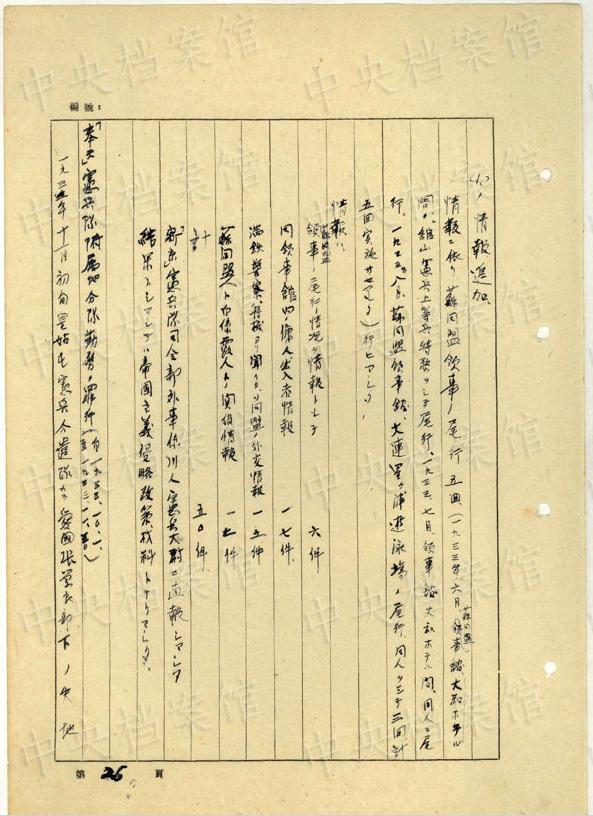 編號：
情報追加、
情報ニ依リ蘇同盟領事ノ尾行 五回（一九三三年六月、蘇同盟領事館、大和ホテル
間、館山憲兵上等兵特務ヲシテ尾行、一九三三、七月、領事館大和ホテル間、同人ヲ尾
行、一九三三、八月、蘇同盟領事館、大連星ヶ浦遊泳場ノ尾行、同人ヲシテ三回計
五回実施サセマシタ）行ヒマシタ、
情報ハ、
蘇同盟領事ノ尾行情況ヲ情報トシテ 六件
同領事館ノ傭人出入者情報 一七件
満鉄警察 聞 同盟ノ外交情報 一五件
蘇同盟人ト白系露人トノ関係情報 一二件
計 五〇件、
新京憲兵隊司令部外事係 憲兵大尉ニ直報シマシタ
結果トシマシテハ帝國主義侵略政策材料トナリマシタ、
「奉天」憲兵隊附属地分隊勤務ノ罪行（自一九三三、一〇、一、至一九三三、一一、三〇）
一九三三年十一月初旬皇姑屯憲兵分遣隊ガ愛國張学良部下ノ
第 25 頁
中央档案馆